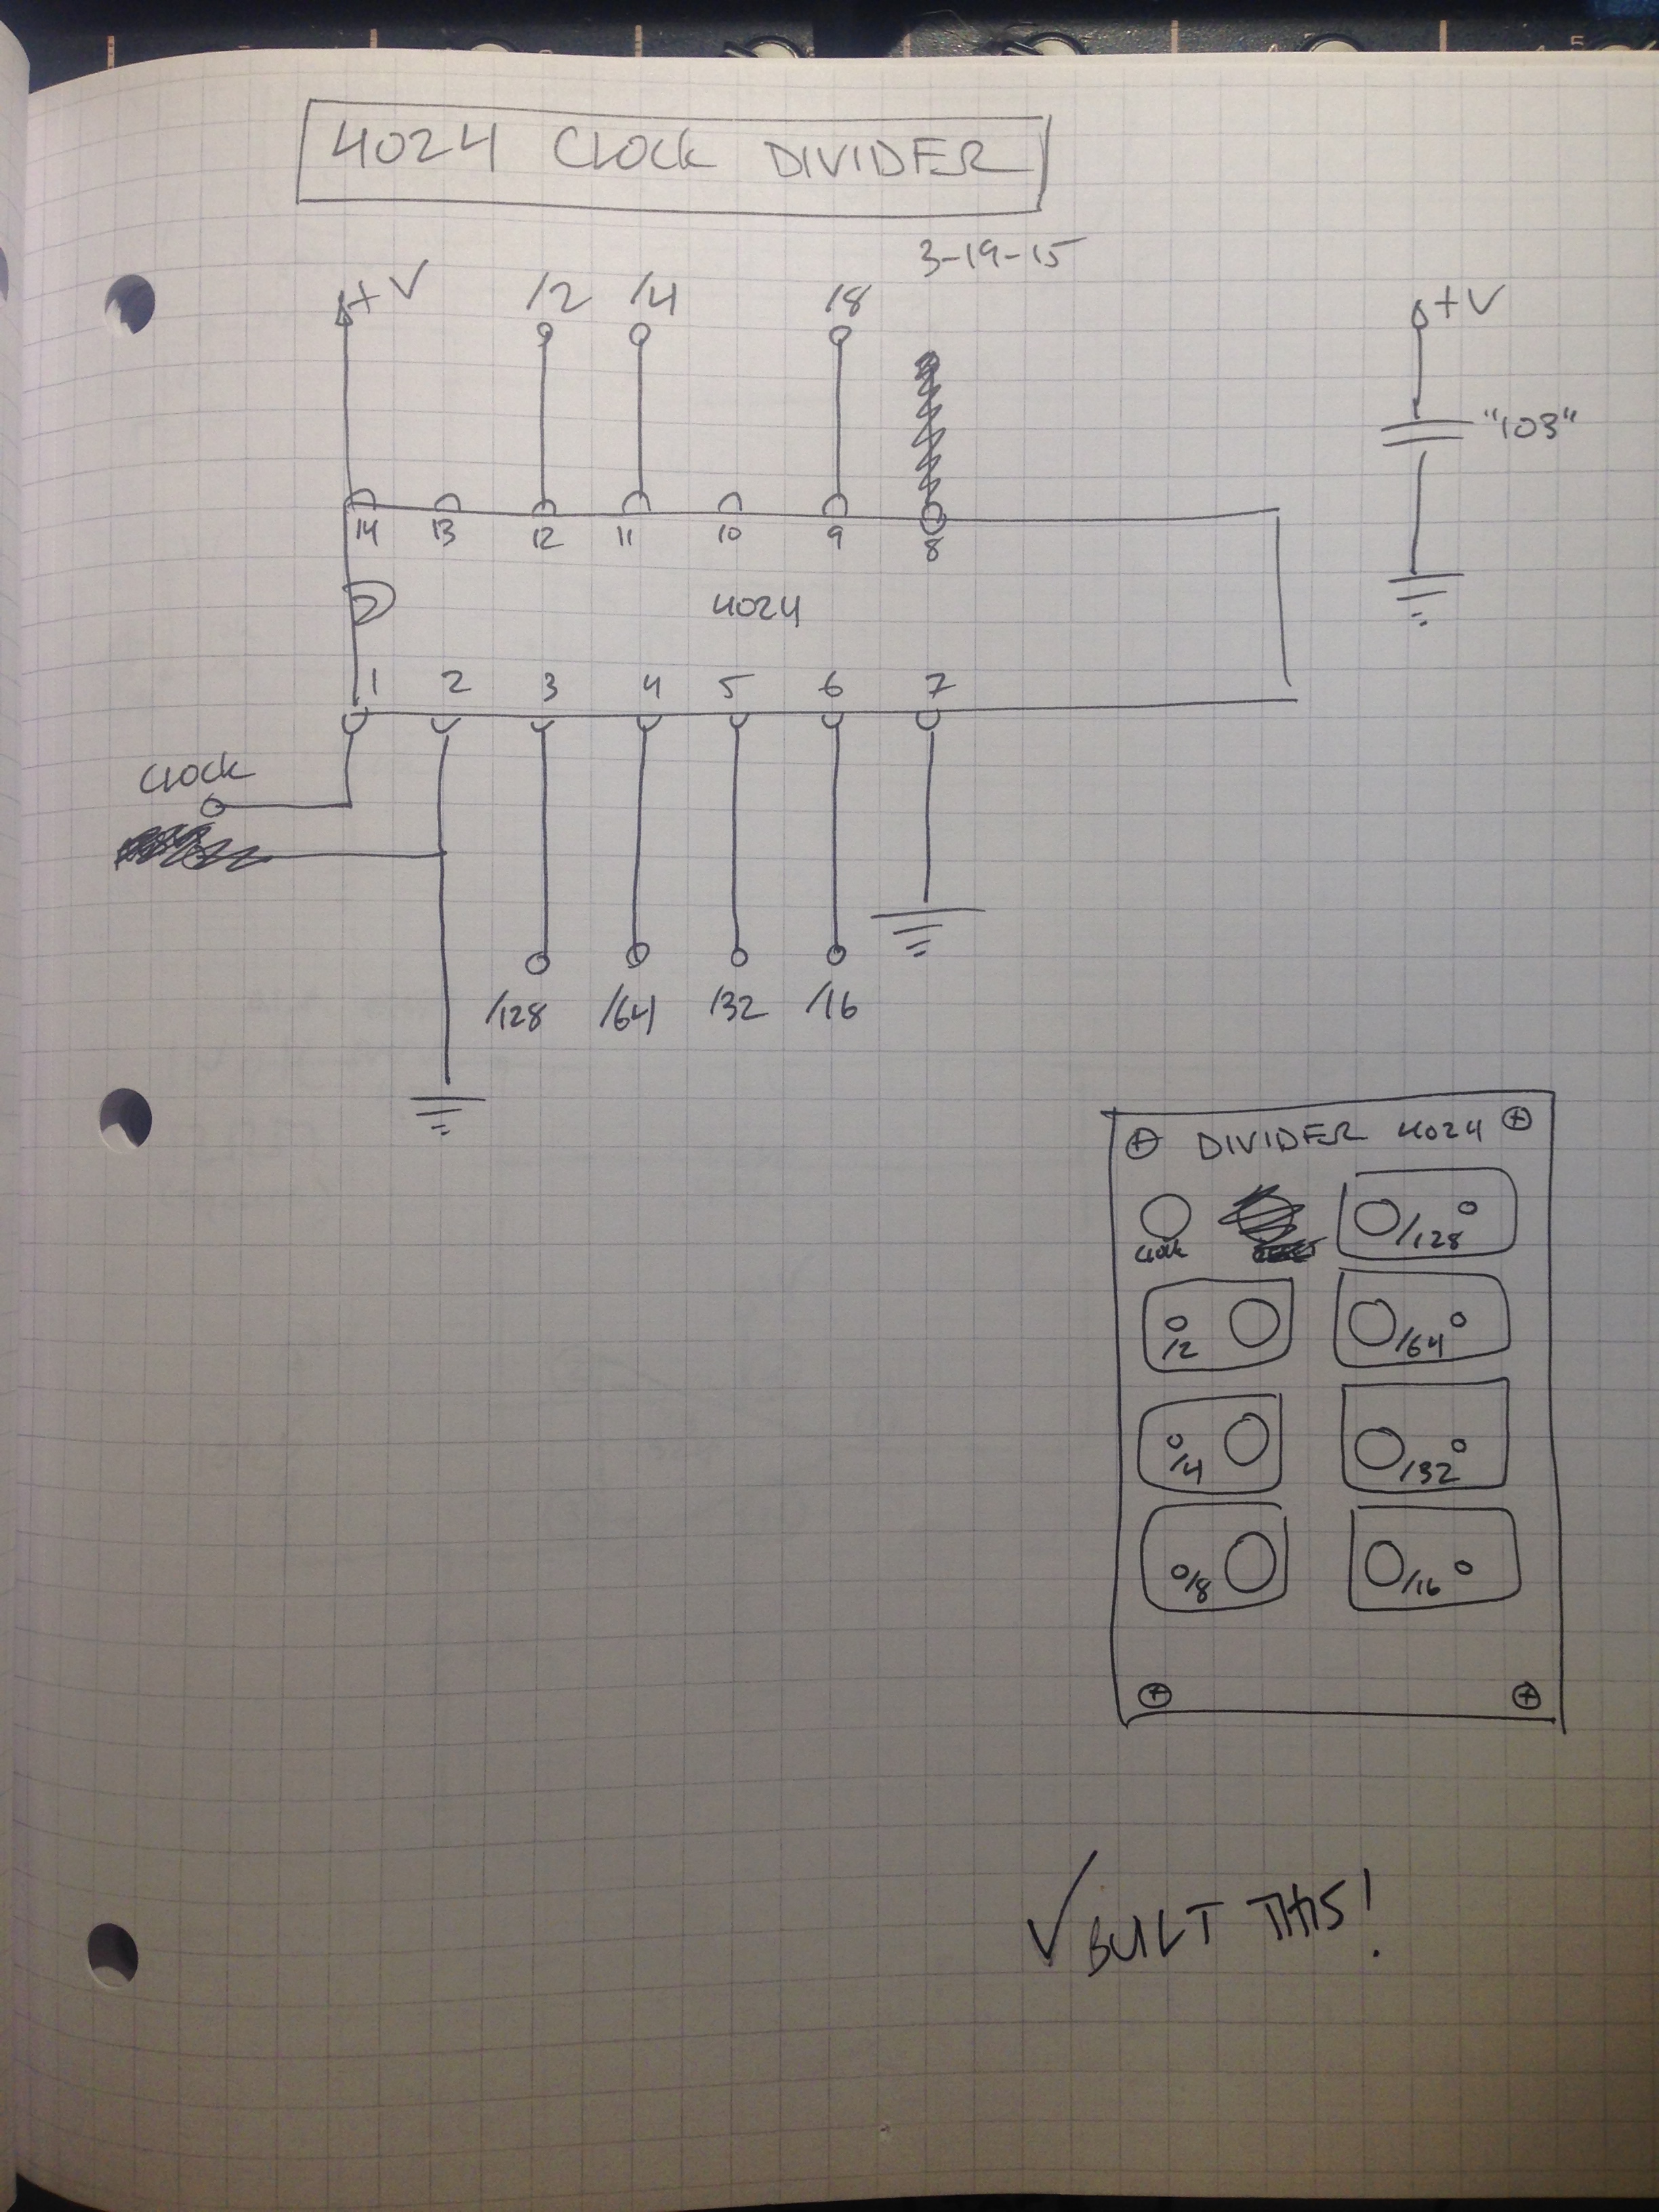 4024 CLOCK DIVIDER
3-19-15
+V /2 /4 /8 +V
"103"
14 13 12 11 10 9 8
4024
1 2 3 4 5 6 7
CLOCK
/128 /64 /32 /16
DIVIDER 4024
CLOCK /128
/2 /64
/4 /32
/8 /16
✓ BUILT THIS!